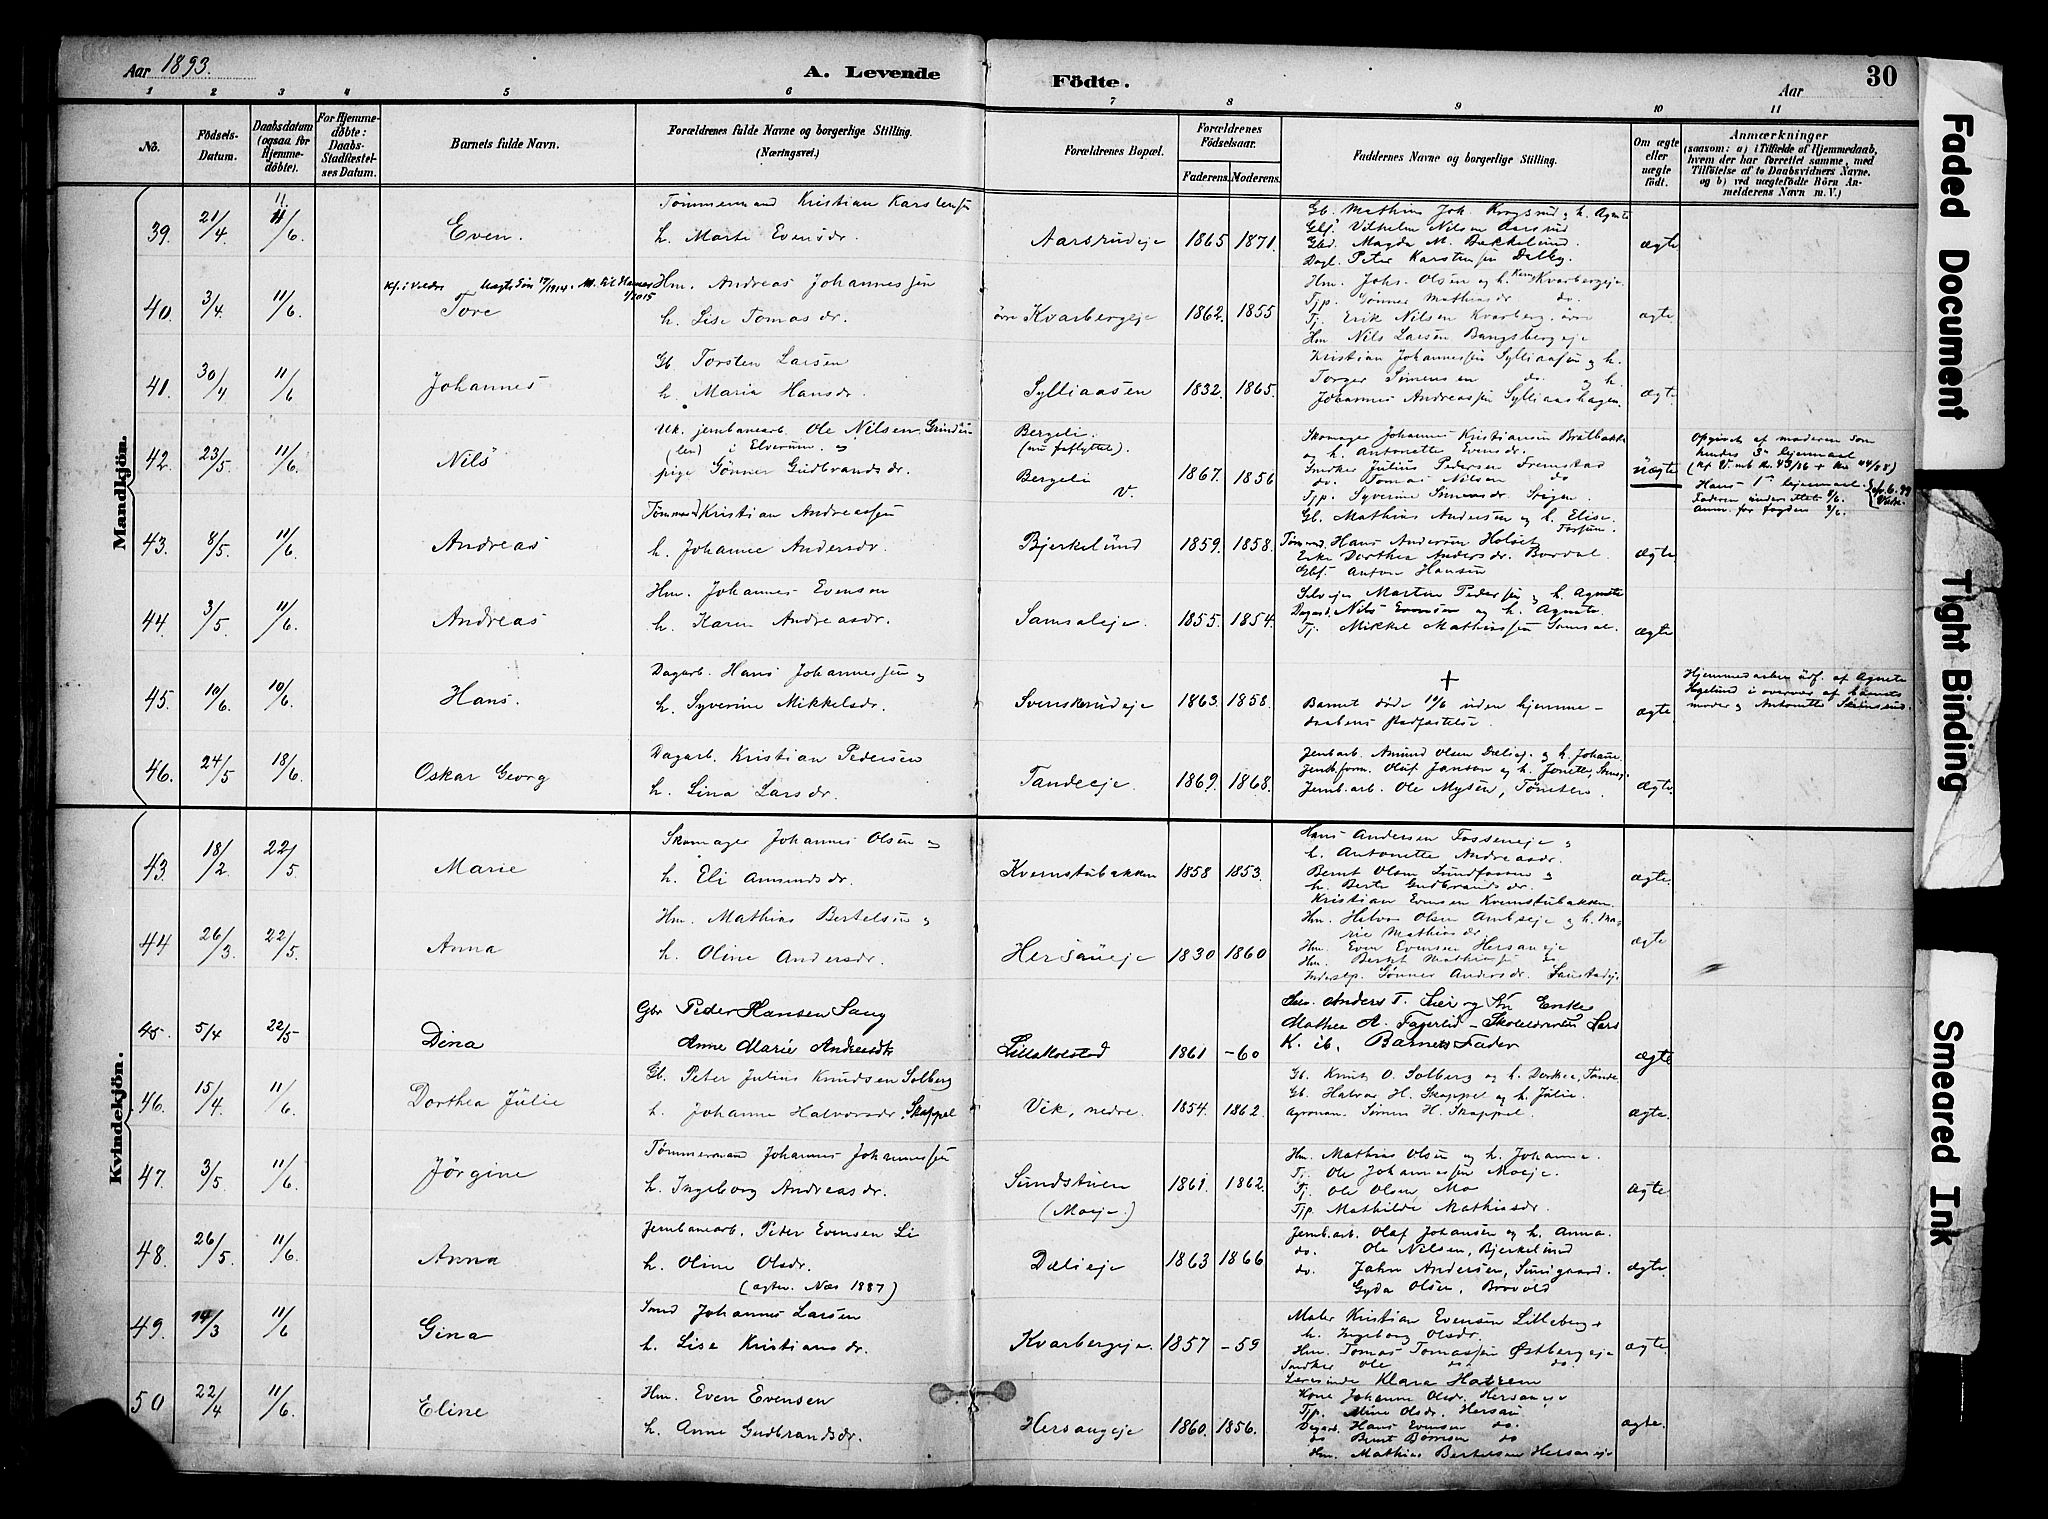 Aar 1893.
A. Levende
Födte.
Aar
30
1 2 3 4 5 6 7 8 9 10 11
No.
Födsels-
Datum.
Daabsdatum
(ogsaa for
Hjemme-
döbte).
For Hjemme-
döbte:
Daabs-
Stadfæstel-
ses Datum.
Barnets fulde Navn.
Forældrenes fulde Navne og borgerlige Stilling.
(Næringsvei.)
Forældrenes Bopæl.
Forældrenes
Födselsaar.
Faderens. Moderens.
Faddernes Navne og borgerlige Stilling.
Om ægte
eller
uægte
födt.
Anmærkninger
(saasom: a) i Tilfælde af Hjemmedaab,
hvem der har forrettet samme, med
Tilföielse af to Daabsvidners Navne.
og b) ved uægtefödte Börn An-
melderens Navn m. V.)
Mandkjön.
39. 21/4 11/6 Even.
Tømmermand Kristian Karstensen
h. Marte Evensdr.
Aarsrudeje 1865 1871.
Gb. Mathias Joh. Krogsrud og h. Agnete
Gbf. Vilhelm Nilsen Aarsrud
Gbd. Magda M. Bakkelund.
Dagl. Peter Karstensen Dælby.
ægte
40. 3/4 11/6 Tore
Hm. Andreas Johannessen
h. Lise Tomasdr.
øvre Kvarbergeje 1862. 1855
Hm. Johs. Olsen og h. Kari Kvarbergeje.
Tjp. Gønner Mathiasdr do.
Tj. Erik Nilsen Kvarberg, øvre
Hm Nils Larsen Bangsbergeje
ægte.
41. 30/4 11/6 Johannes
Gb. Torsten Larsen
h. Maria Hansdr.
Sylliaasen 1832. 1865.
Kristian Johannessen Sylliaasen og h.
Torger Simensen do. og h.
Johannes Andreassen Sylliaashagen.
ægte.
42. 23/5 11/6 Nils
Uk. jernbanearb. Ole Nilsen Grindu-
(len) i Elverum og
pige Gønner Gudbrandsdr.
Bergeli.
(nu fraflyttet).
Bergeli V.
1867. 1856
Skomager Johannes Kristiansen Bratbakke
og h. Antonette Evensdr.
Snedker Julius Pedersen Fremstad
do. Tomas Nilsen do
Tjp. Syverine Simensdr. Stigen.
uægte
Opgivet af moderen som
hendes 3die lejermaal
Hans 1ste lejermaal
Faderen underrettet 8/6.
Anm. for fogden 8/6.
43. 8/5. 11/6. Andreas
Tømmermd Kristian Andreassen
h. Johanne Andersdr.
Bjerkelund 1859. 1858.
Gb. Mathias Andersen og h. Elise.
Tømmd. Hans Andersen Holset
Enke Dorthea Andersdr. Borval.
Gbf. Anton Hansen
ægte
44. 3/5. 11/6. Andreas
Hm. Johannes Evensen
h. Karen Andreasdr.
Samsaleje. 1855. 1854.
Selvejer Martin Pedersen og h. Agnete
Dagarb. Nils Evensen og h. Agnete.
Tj. Mikkel Mathiassen Samsal.
ægte
45. 10/6. 10/6. Hans.
Dagarb. Hans Johannessen og
h. Syverine Mikkelsdr.
Svenskerudeje 1863. 1858.
Barnet døde 10/6 uden hjemme-
daabens stadfæstelse.
ægte
Hjemmedaaben udf. af Agnete
Hagelund i overvær af barnets
moder og Antonette
46. 24/5 18/6. Oskar Georg
Dagarb. Kristian Pedersen
h. Lina Larsdr.
Tandeeje. 1869. 1868.
Jernb.arb. Amund Olsen Dælieje og h. Johanne
Jernb.form. Oluf Janson og h. Jonette,
Jernb.arb. Ole Mysen, Tønsberg.
ægte.
Kvindekjön.
43. 18/2 22/5. Marie
Skomager Johannes Olsen og
h. Eli Amundsdr.
Kvernstubakken 1858 1853.
Hans Andersen Fosseneje og
h. Antonette Andreasdr.
Bernt Olsen Lundfossen og
h. Berte Gudbrandsdr.
Kristian Evensen Kvernstubakken.
ægte.
44 26/3 22/5. Anna
Hm. Mathias Bertelsen og
h. Oline Andersdr.
Hersaueje 1830 1860
Hm. Halvor Olsen Ambseje og h. Ma-
rie Mathiasdr.
Hm. Even Evensen Hersaueje
Hm. Bernt Mathiassen do
Inderstp. Gønner Andersdr. Saustadeje
ægte
45. 5/4 22/5 Dina
Gbr Peder Hansen Sang
Anne Marie Andreasdtr
Lilleskolstad 1861 -60
Anders T. Lier og Fru Enke
Mathea A. Fagerlid - Skolelærer Lars
K. ib. Barnets Fader
ægte
46. 15/4. 11/6. Dorthea Julie
Gb. Peter Julius Knudsen Solberg
h. Johanne Halvorsdr. Skappel
Vik, nedre. 1854. 1862.
Gb. Knut O. Solberg og h. Dorthea, Tande
Gb. Halvor H. Skappel og h. Julie.
Agronom. Simen H. Skappel.
ægte.
47. 3/5. 11/6. Jørgine
Tømmermand Johannes Johannessen
h. Ingeborg Andreasdr.
Sundstuen
(Moeje.)
1861. 1862.
Hm. Mathias Olsen og h. Johanne.
Tj. Ole Johannessen Moeje.
Tj. Ole Olsen Mo
Tjp. Mathilde Mathiasdr.
ægte
48. 26/5. 11/6. Anna
Jernbanearb. Peter Evensen Li
h. Oline Olsdr.
(ægtev. Næs 1887)
Dælieje 1863 1866
Jernb.arb. Olaf Johansen og h. Anna.
do. Ole Nilsen, Bjerkelund
do. Jahn Andersen,
Gyda Olsen, Brovold
ægte.
49. 14/3 11/6 Gina
Smed Johannes Larsen
h. Lise Kristiansdr.
Kvarbergeje. 1857 -59
Maler Kristian Evensen Lilleberg og
h. Ingeborg Olsdr.
Hm. Tomas Tomassen Østbergeje
Snedker Ole do do.
Lærerinde Klara Hatrem
ægte.
50 22/4 11/6. Eline
Hm. Even Evensen
h. Anne Gudbrandsdr.
Hersaugeje 1860. 1856.
Kone Johanne Olsdr. Hersaueje
Tjp. Mine Olsdr. Hersau
Dagarb. Hans Evensen do.
do Bernt do
Hm. Mathias Bertelsen Hersaueje
ægte.
Faded Document
Tight Binding
Smeared Ink